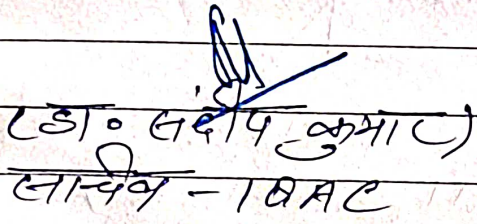 (डा० संदीप कुमार)
सचिव - IQAC